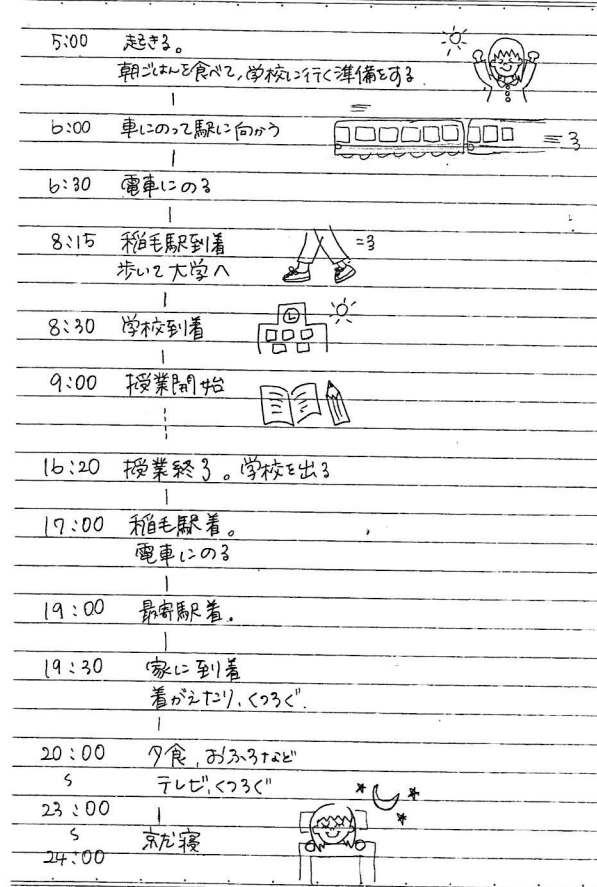 5:00 起きる。
朝ごはんを食べて,学校に行く準備をする.
6:00 車にのって駅に向かう
6:30 電車にのる
8:15 稲毛駅到着
歩いて大学へ
8:30 学校到着
9:00 授業開始
16:20 授業終了。学校を出る
17:00 稲毛駅着。
電車にのる
19:00 最寄駅着.
19:30 家に到着
着がえたり、くつろぐ.
20:00 夕食,おふろなど
テレビ,くつろぐ
23:00
24:00 就寝